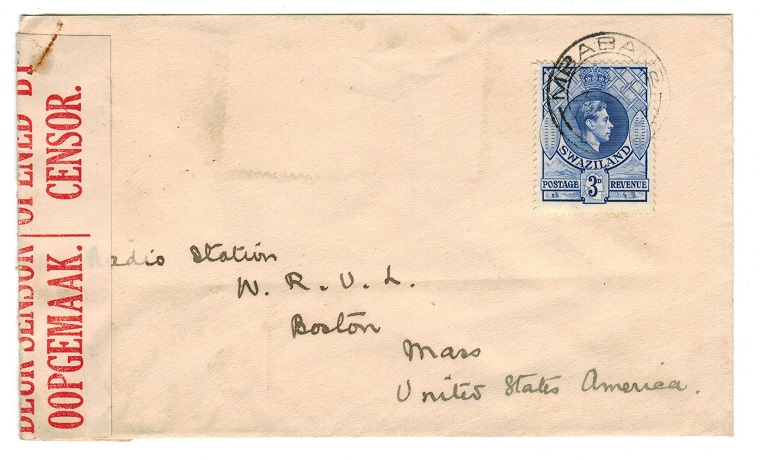 OPENED BY
CENSOR.
DEUR SENSOR
OOPGEMAAK.
MBABANE
SWAZILAND
POSTAGE 3D REVENUE
Radio Station
W. R. U. L.
Boston
Mass
United States America.